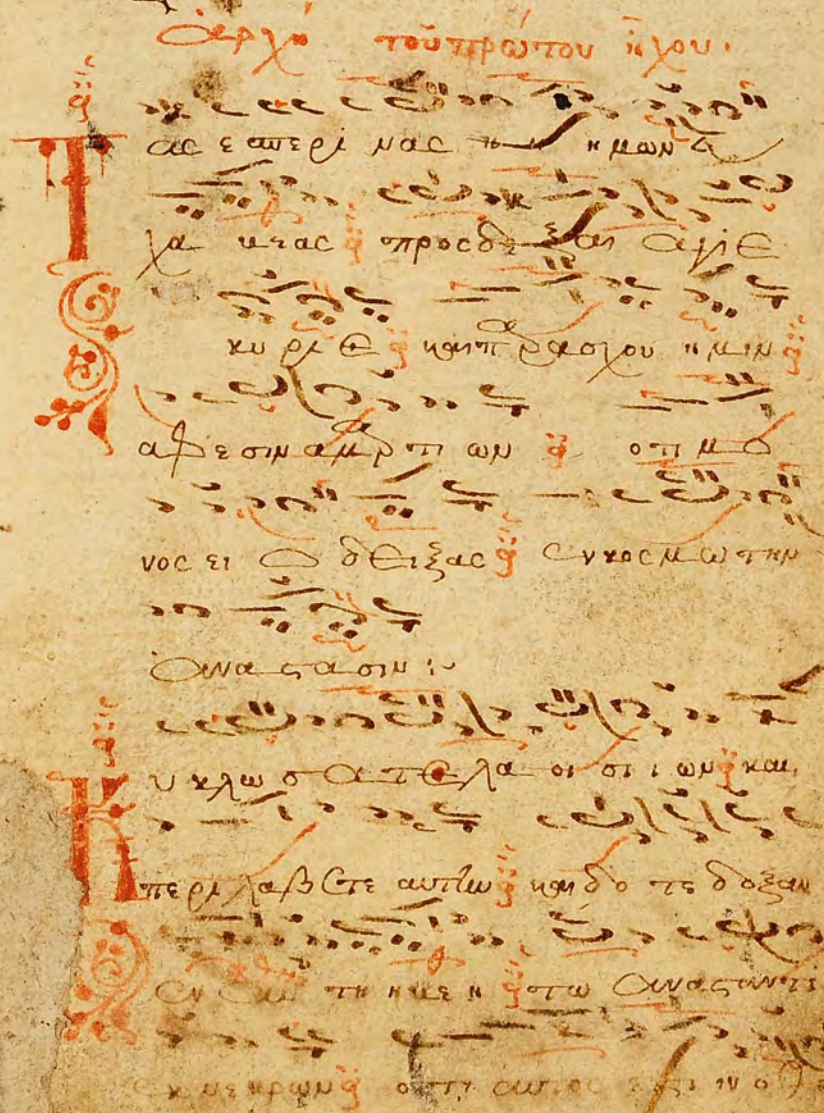 ἀρχὴ τοῦ πρώτου ἤχου.
Τας εσπερι νας η η ημων ευ
χα κεας προςδε ξαι αγιε
κυ ριε και παρασχου ημιν
αφεσιν αμαρτι ων οτι μο
νος ει ο δειξας εν κοσμω την
αναστασιν :
Κυκλωσατε λαοι σιων και
περι λαβετε αυτην και δο τε δοξαν
εν αυ τη τω ανασταντι
εκ νεκρων οτι αυτος εστιν ο